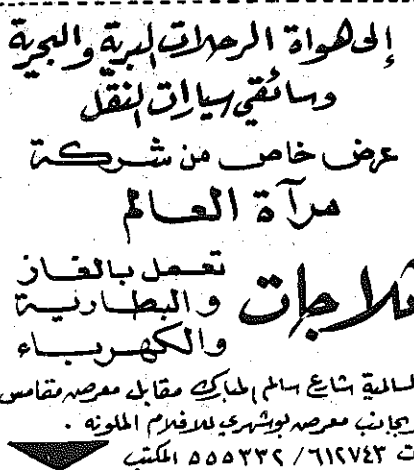 إلى هواة الرحلات البرية والبحرية
وسائقي سيارات النقل
عرض خاص من شركة
مرآة العالم
ثلاجات
تعمل بالغاز
والبطارية
والكهرباء
السالمية شارع سالم المبارك مقابل معرض مقامس
وبجانب معرض بوشهري للافلام الملونه .
ت ٦١٢٧٤٣ / ٥٥٥٣٣٢ المكتب